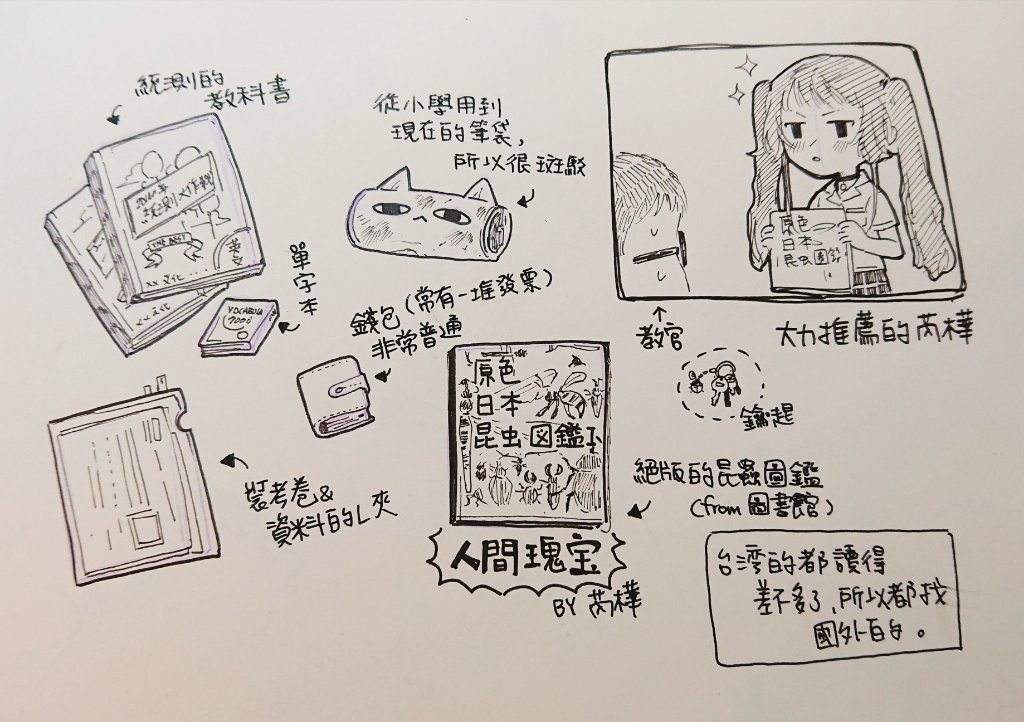 統測的
教科書
統測大作戰
THE BEST
英文
XX文化
XX文化
單字本
VOCABULA
7000
從小學用到
現在的筆袋,
所以很斑駁
錢包(常有一堆發票)
非常普通
原色
日本
昆虫圖鑑
教官
大力推薦的芮樺
鑰匙
裝考卷&
資料的L夾
原色
日本
昆虫図鑑
人間瑰宝
BY 芮樺
絕版的昆蟲圖鑑
(from圖書館)
台湾的都讀得
差不多了,所以都找
國外的。